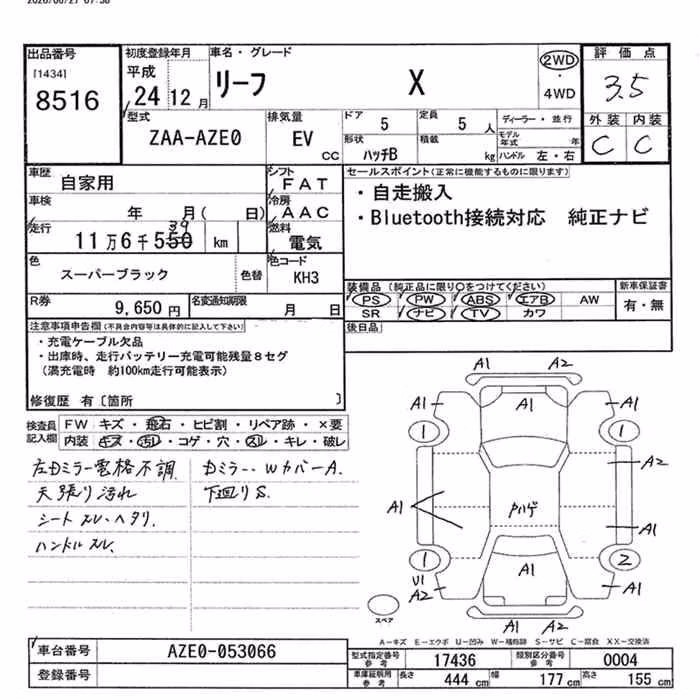 出品番号 初度登録年月 車名・グレード 評価点
[1434] 平成 リーフ X 2WD ・ 4WD 3.5
8516 24 12月
型式 排気量 ドア 5 定員 5人 ディーラー・並行 外装 内装
ZAA-AZE0 EV CC 形状 ハッチB 積載 kg モデル年式 年 C C
ハンドル 左・右
車歴 自家用 シフト FAT セールスポイント(正常に機能するものに限ります)
車検 年 月( 日) 冷房 AAC ・自走搬入
走行 11万6千550 39 km 燃料 電気 ・Bluetooth接続対応 純正ナビ
色 スーパーブラック 色替 色コード KH3
装備品(純正品に限り○をつけてください) 新車保証書
PS PW ABS エアB AW 有・無
R券 9,650円 名変通知期限 月 日 SR ナビ TV カワ
注意事項申告欄(不具合内容等は具体的に記入して下さい) 後日品
・充電ケーブル欠品
・出庫時、走行バッテリー充電可能残量8セグ
(満充電時 約100km走行可能表示)
修復歴 有〔箇所 〕
検査員記入欄 FW キズ・飛石・ヒビ割・リペア跡・×要
内装 キズ・汚れ・コゲ・穴・スレ・キレ・破レ
左Dミラー電格不調 Dミラー、WカバーA.
天張り汚れ 下廻りS.
シートスレ・ヘタリ、
ハンドルスレ、
A1 A2
A1 A1 A1
1 1
A2
A1 Pハゲ A1
1 2
U1 A1
A2 A1
スペア
A1 A2
A-キズ E-エクボ U-凹み W-補修跡 S-サビ C-腐食 XX-交換済
車台番号 AZE0-053066 型式指定番号 参考 17436 類別区分番号 参考 0004
登録番号 車庫証明用 参考 長さ 444cm 幅 177cm 高さ 155cm